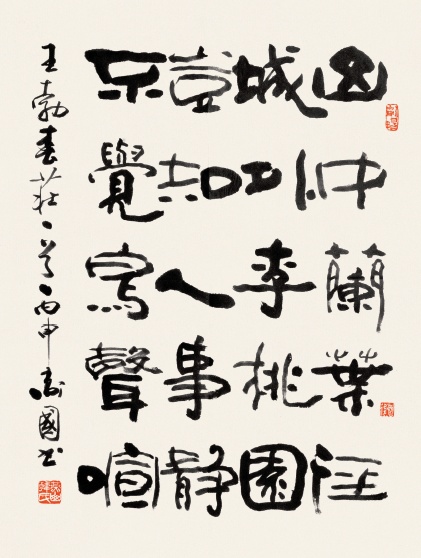 山中蘭葉径
城外李桃園
豈知人事静
不覺鳥聲喧
王勃春莊一首丙申國书